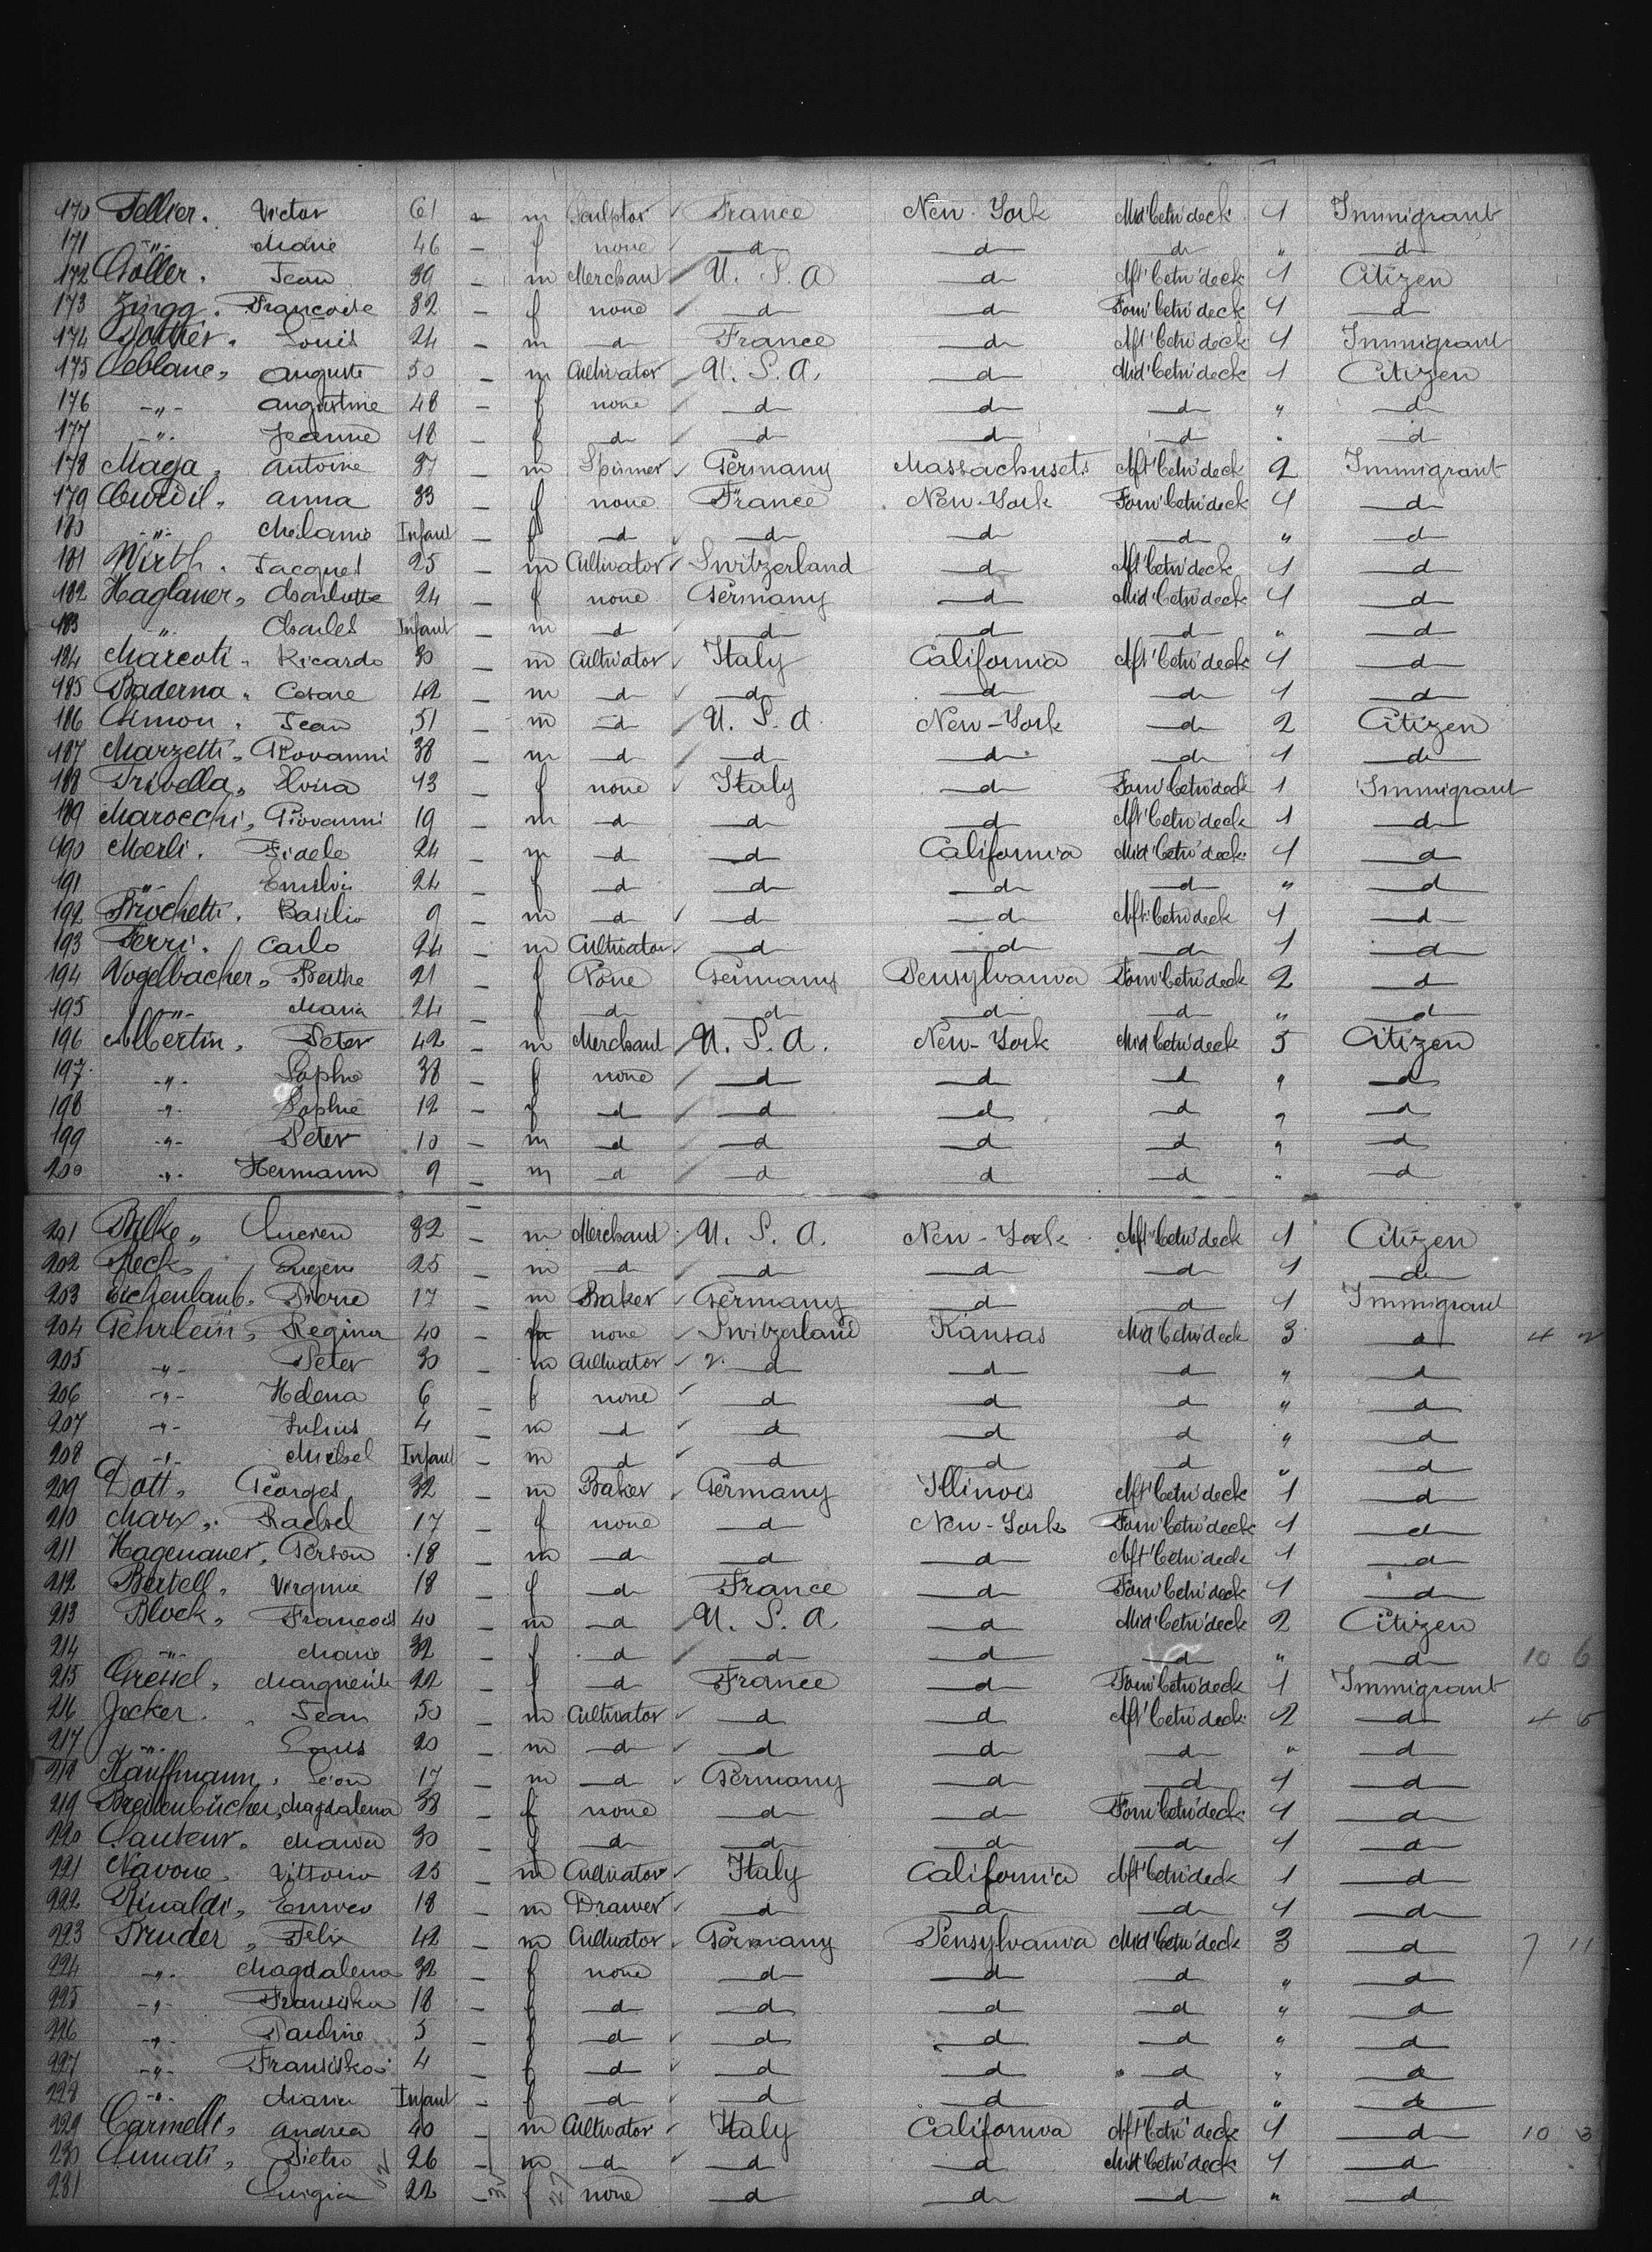 170 Tellier. Victor 61 - m Sculptor France New-York Mid'betw'deck 1 Immigrant
171 -"- Marie 46 - f none d d d " d
172 Goller. Jean 39 - m Merchant U.S.A d Aft'betw'deck 1 Citizen
173 Zingg. Françoise 32 - f none d d Forw'betw'deck 1 d
174 Louis 24 - m d France d Aft'betw'deck 1 Immigrant
175 Leblanc, Auguste 50 - m Cultivator U.S.A. d Mid'betw'deck 1 Citizen
176 -"- Augustine 48 - f none d d d " d
177 -"- Jeanne 18 - f d d d d " d
178 Maga, Antoine 37 - m Spinner Germany Massachusets Aft'betw'deck 2 Immigrant
179 Anna 33 - f none France New-York Forw'betw'deck 1 d
180 -"- Melanie Infant - f d d d d " d
181 Wirth. Jacques 25 - m Cultivator Switzerland d Aft'betw'deck 1 d
182 Haglauer, Charlotte 24 - f none Germany d Mid'betw'deck 1 d
183 -"- Charles Infant - m d d d d " d
184 Marcoti. Ricardo 30 - m Cultivator Italy California Aft'betw'deck 1 d
185 Baderna. Cesare 42 - m d d d d 1 d
186 Simon. Jean 51 - m d U.S.A New-York d 2 Citizen
187 Marzetti, Giovanni 38 - m d d d d 1 d
188 Trivella, Elvira 43 - f none Italy d Forw'betw'deck 1 Immigrant
189 Marocchi, Giovanni 19 - m d d d Aft'betw'deck 1 d
190 Merli. Fidele 24 - m d d California Mid'betw'deck 1 d
191 -"- 24 - f d d d d " d
192 Brochetti. Basilio 9 - m d d d Aft'betw'deck 1 d
193 Ferri. Carlo 24 - m Cultivator d d d 1 d
194 Vogelbacher, Berthe 21 - f None Germany Pensylvania Forw'betw'deck 2 d
195 -"- Maria 24 - f d d d d " d
196 Albertin, Peter 42 - m Merchant U.S.A. New-York Mid betw'deck 5 Citizen
197 -"- Sophie 38 - f none d d d " d
198 -"- Sophie 12 - f d d d d " d
199 -"- Peter 10 - m d d d d " d
200 -"- Hermann 9 - m d d d d " d
201 Bilke, Lucien 32 - m Merchant U.S.A. New-York Aft'betw'deck 1 Citizen
202 Reck, Eugene 25 - m d d d d 1 d
203 Eichenlaub. Pierre 17 - m Baker Germany d d 1 Immigrant
204 Gehrlein, Regina 40 - f none Switzerland Kansas Mid betw'deck 3 d 4 2
205 -"- Peter 30 - m Cultivator d d d " d
206 -"- Helena 6 - f none d d d " d
207 -"- Julius 4 - m d d d d " d
208 -"- Michel Infant - m d d d d " d
209 Dott, Georges 32 - m Baker Germany Illinois Aft'betw'deck 1 d
210 Marx, Rachel 17 - f none d New-York Forw'betw'deck 1 d
211 Hagenauer, Gerson 18 - m d d d Aft'betw'deck 1 d
212 Bertell, Virginie 18 - f d France d Forw'betw'deck 1 d
213 Block, Francois 40 - m d U.S.A d Mid'betw'deck 2 Citizen
214 -"- Marie 32 - f d d d d " d 10 6
215 Gressel, Marguerite 22 - f d France d Forw'betw'deck 1 Immigrant
216 Jecker. Jean 50 - m Cultivator d d Aft'betw'deck 2 d 4 5
217 -"- Louis 20 - m d d d d " d
218 Kauffmann, Leon 17 - m d Germany d d 1 d
219 Breitenbücher, Magdalena 38 - f none d d Forw'betw'deck 1 d
220 Lauteur, Maria 30 - f d d d d 1 d
221 Navone, Vittorio 25 - m Cultivator Italy California Aft'betw'deck 1 d
222 Rinaldi, Enrico 18 - m Drawer d d d 1 d
223 Bruder, Felix 42 - m Cultivator Germany Pensylvania Mid'betw'deck 3 d 7 11
224 -"- Magdalena 32 - f none d d d " d
225 -"- Fransiska 18 - f d d d d " d
226 -"- Pauline 5 - f d d d d " d
227 -"- Fransiska 4 - f d d d d " d
228 -"- Maria Infant - f d d d d " d
229 Carmelli, Andrea 40 - m Cultivator Italy California Aft'betw'deck 1 d 10 3
230 Lunati, Pietro 26 - m d d d Mid'betw'deck 1 d
231 Luigia 22 - f none d d d " d